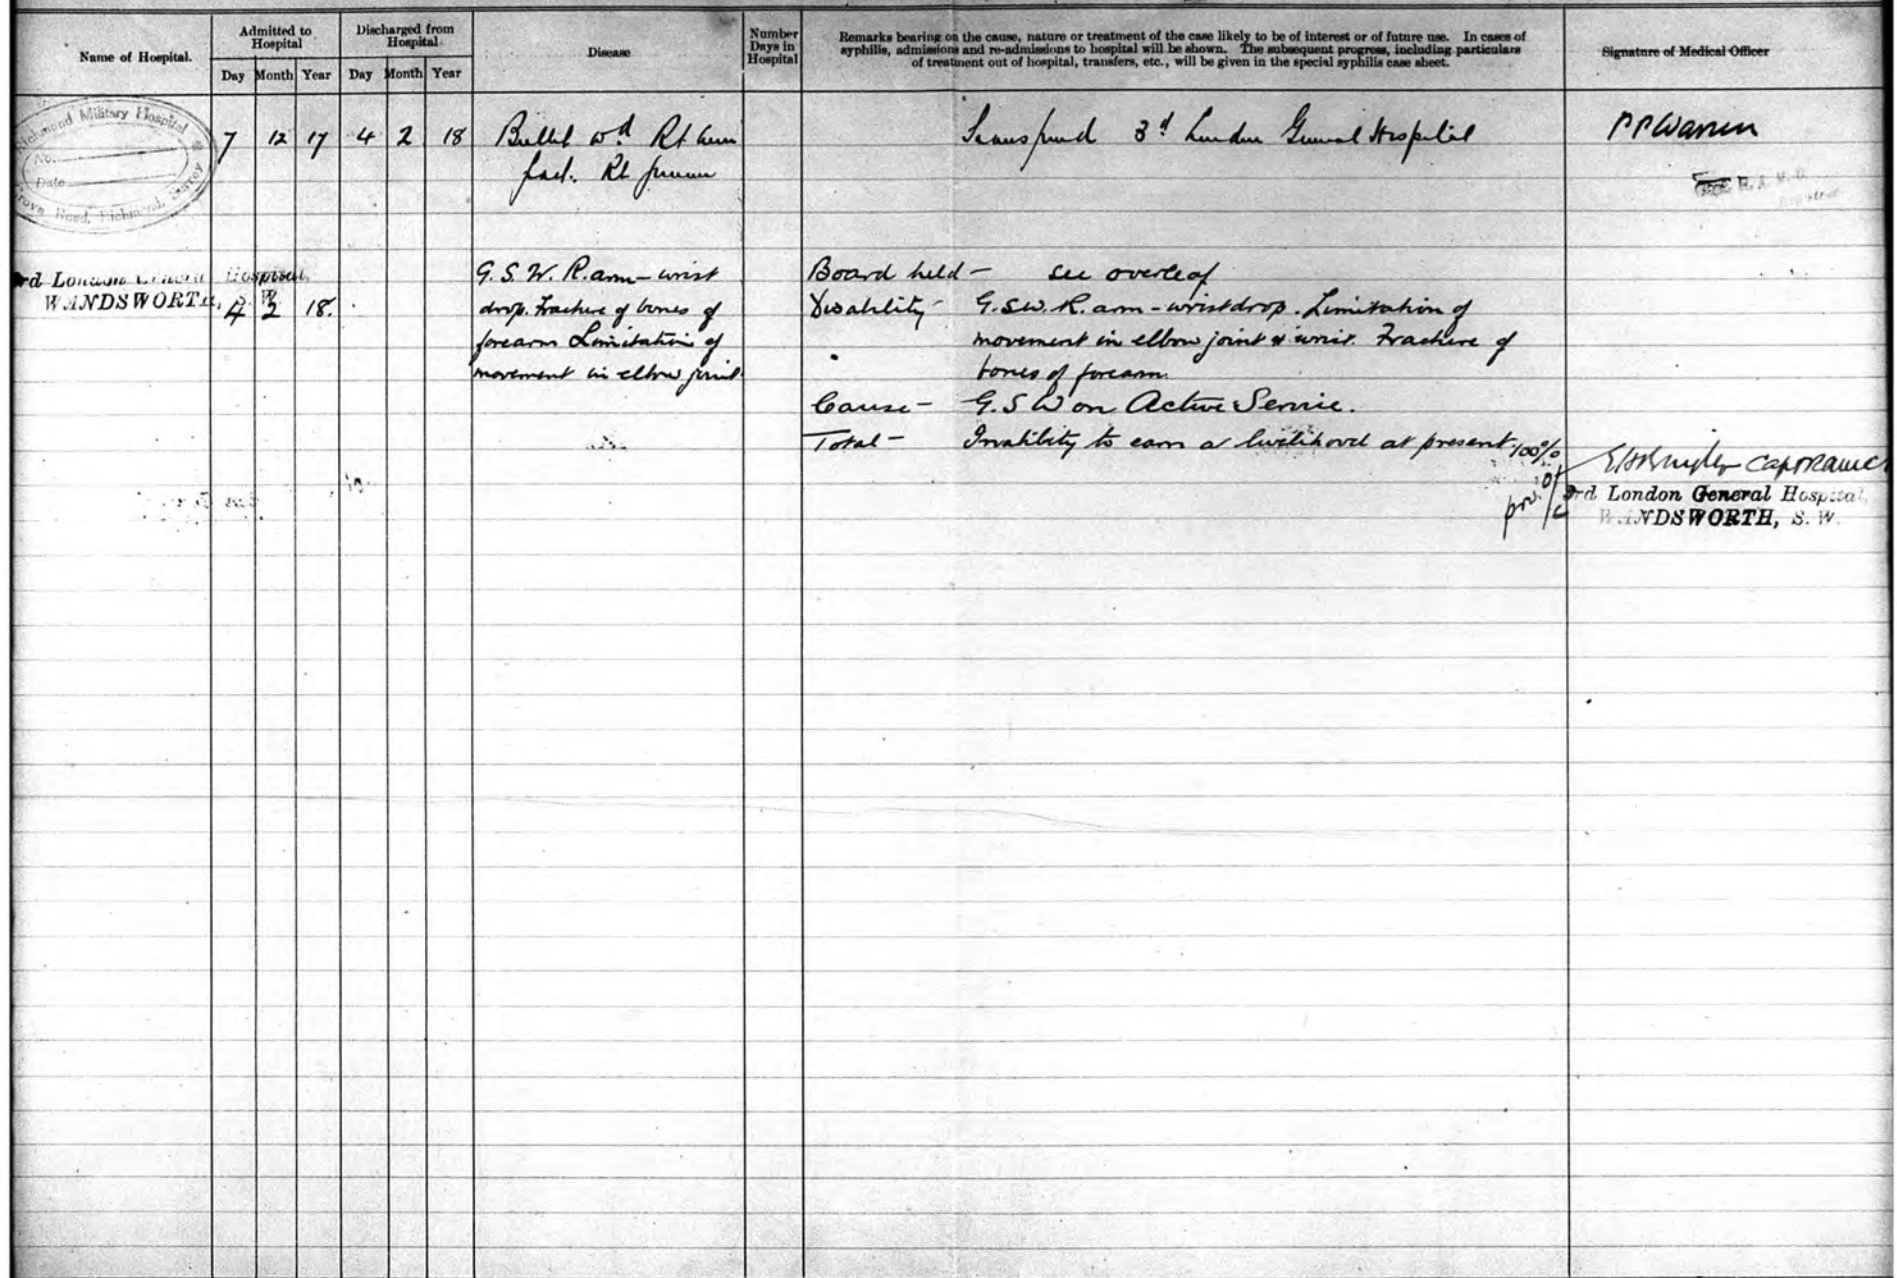 Name of Hospital.
Admitted to Hospital
Discharged from Hospital
Disease
Number Days in Hospital
Remarks bearing on the cause, nature or treatment of the case likely to be of interest or of future use. In cases of
syphilis, admissions and re-admissions to hospital will be shown. The subsequent progress, including particulars
of treatment out of hospital, transfers, etc., will be given in the special syphilis case sheet.
Signature of Medical Officer
Day Month Year Day Month Year
Richmond Military Hospital
No.
Date
Grove Road, Richmond, Surrey
7 12 17 4 2 18 Bullet wd Rt arm 3rd London General Hospital PPWarren
fract. Rt
R. A. M. C.
3rd London General Hospital,
WANDSWORTH, S.W.
4 2 18.
G. S. W. R. arm - wrist
drop. Fracture of bones of
forearm Limitation of
movement in elbow joint.
Board held - see overleaf
Disability - G.S.W. R. arm - wristdrop. Limitation of
movement in elbow joint & wrist. Fracture of
bones of forearm.
Cause - G.S W on Active Service.
Total - Inability to earn a livelihood at present. 100%
Capt RAMC
3rd London General Hospital,
WANDSWORTH, S. W.